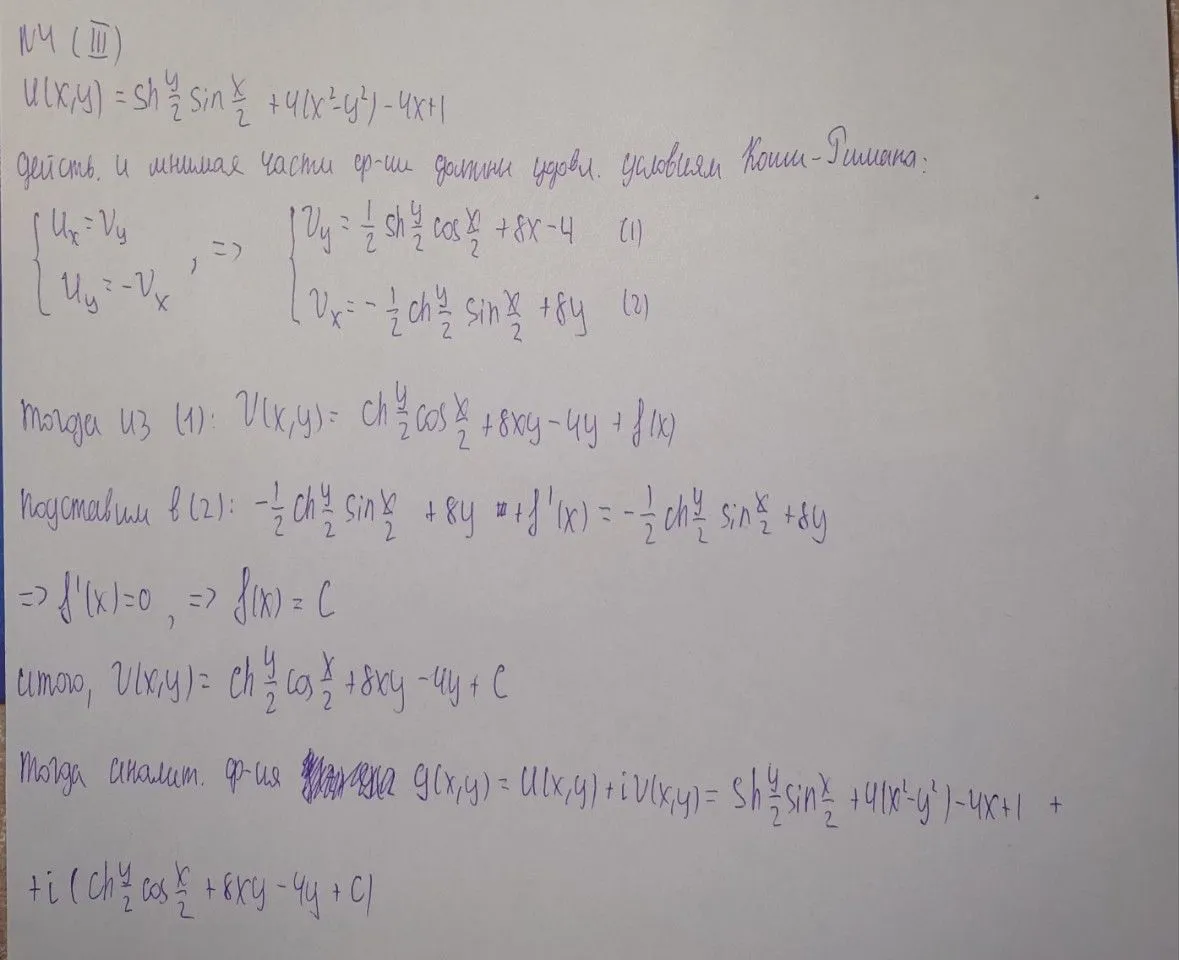 N4 (III)
U(x,y) = sh y/2 sin x/2 + 4(x²-y²) - 4x+1
действ. и мнимая части ф-ии должны удовл. условиям Коши-Римана:
{ Uₓ = Vy , => { Vy = 1/2 sh y/2 cos x/2 + 8x - 4 (1)
Uy = -Vₓ Vₓ = - 1/2 ch y/2 sin x/2 + 8y (2)
Тогда из (1): V(x,y) = ch y/2 cos x/2 + 8xy - 4y + f(x)
Подставим в (2): - 1/2 ch y/2 sin x/2 + 8y + f'(x) = - 1/2 ch y/2 sin x/2 + 8y
=> f'(x)=0, => f(x) = C
итого, V(x,y) = ch y/2 cos x/2 + 8xy - 4y + C
Тогда аналит. ф-ия g(x,y) = U(x,y) + iV(x,y) = sh y/2 sin x/2 + 4(x²-y²) - 4x+1 +
+ i (ch y/2 cos x/2 + 8xy - 4y + C)